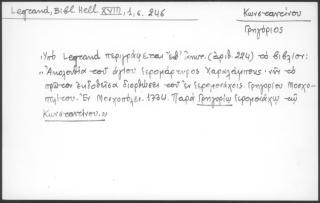 Legrand, Bibl. Hell. XVIII, 1, σ. 246
Κωνσταντίνου
Γρηγόριος
Ὑπὸ Legrand περιγράφεται (ἀριθ. 224) τὸ βιβλίον:
"Ἀκολουθία τοῦ ἁγίου ἱερομάρτυρος Χαραλάμπους· νῦν τὸ
πρῶτον ἐκδοθεῖσα διορθώσει τοῦ ἐν ἱερομονάχοις Γρηγορίου Μοσχο-
πολίτου. Ἐν Μοσχοπόλει. 1734. Παρὰ Γρηγορίῳ ἱερομονάχῳ τῷ
Κωνσταντίνου."